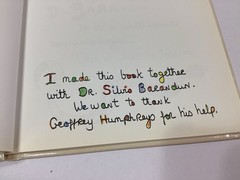 I made this book together
with DR. Silvio Barandun.
We want to thank
Geoffrey Humphreys for his help.